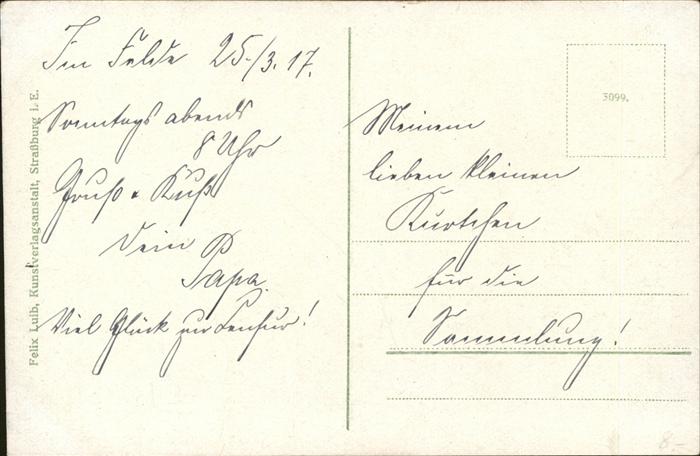 Im Felde 25./3.17.
Sonntags abends
8 Uhr
Gruß & Kuß
Dein
Papa.
Viel Glück zur Censur!
Meinem
lieben kleinen
Kurtchen
für die
Sammlung!
3099.
Felix Luib, Kunstverlagsanstalt, Straßburg i. E.
8.-